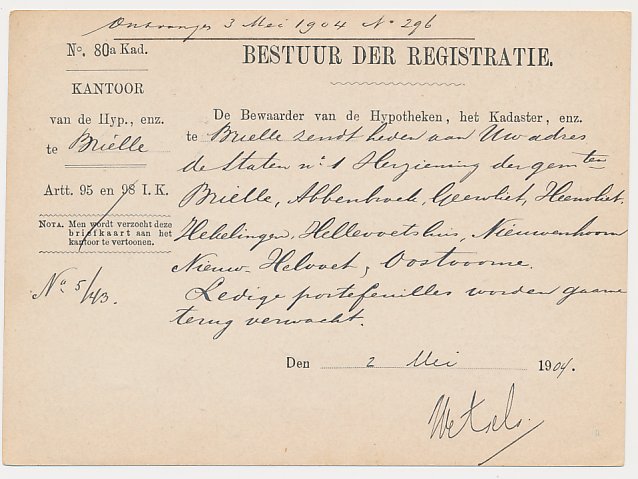 Ontvangen 3 Mei 1904 No 296
No. 80a Kad.
BESTUUR DER REGISTRATIE.
KANTOOR
van de Hyp., enz.
te Briëlle
Artt. 95 en 98 I. K.
NOTA. Men wordt verzocht deze
briefkaart aan het
kantoor te vertoonen.
No 5/43.
De Bewaarder van de Hypotheken, het Kadaster, enz.
te Brielle zendt heden aan Uw adres
de Staten no 1 Herziening der gemten
Briëlle, Abbenbroek, Geervliet, Heenvliet,
Hekelingen, Hellevoetsluis, Nieuwenhoorn
Nieuw-Helvoet, Oostvoorne.
Ledige portefeuilles worden gaarne
terug verwacht.
Den 2 Mei 1904.